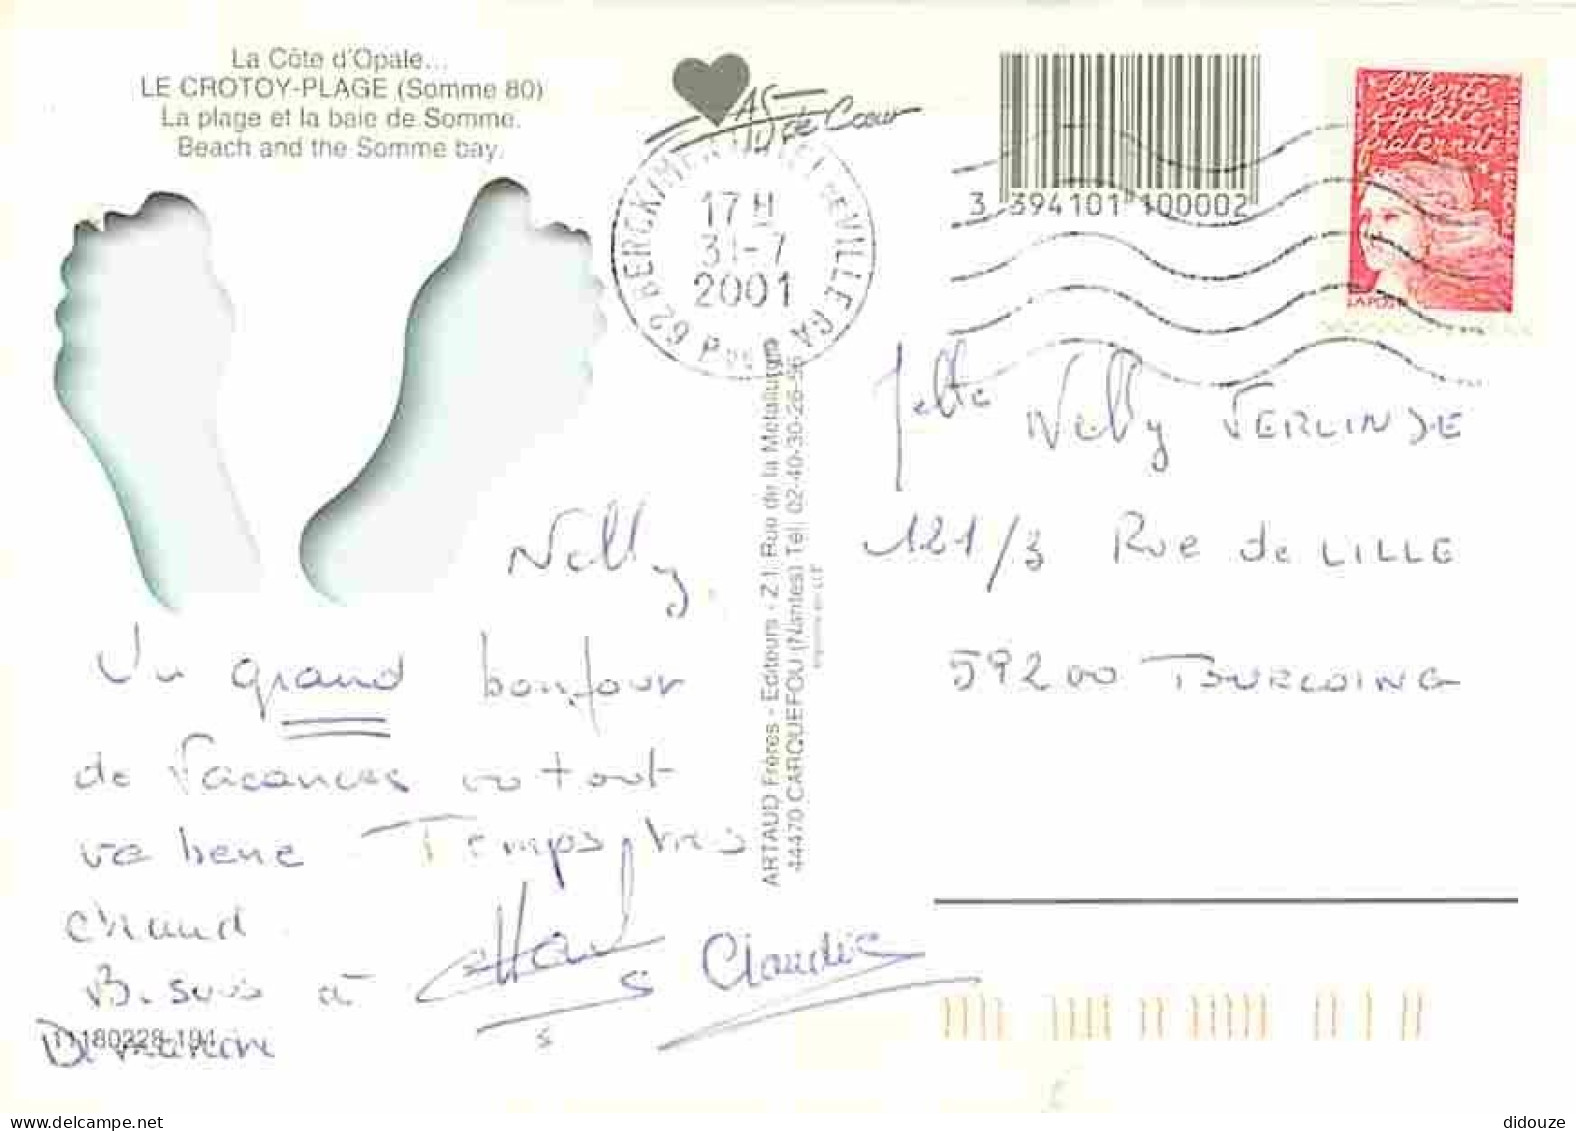 La Côte d'Opale...
LE CROTOY-PLAGE (Somme 80)
La plage et la baie de Somme.
Beach and the Somme bay.
As de Coeur
62 BERCK
17 H
31-7
2001
3 394101 100002
Liberté
égalité
fraternité
LA POSTE
ARTAUD Frères - Editeurs - Z.I. Rue de la Métallurgie
44470 CARQUEFOU (Nantes) Tél. 02-40-30-26-56
Nelly VERLINDE
121/3 Rue de LILLE
59200 TOURCOING
Nelly.
Un grand bonjour
de Vacances où tout
va bene Temps très
chaud.
Bisous à
Claudie
11180228-194
didouze